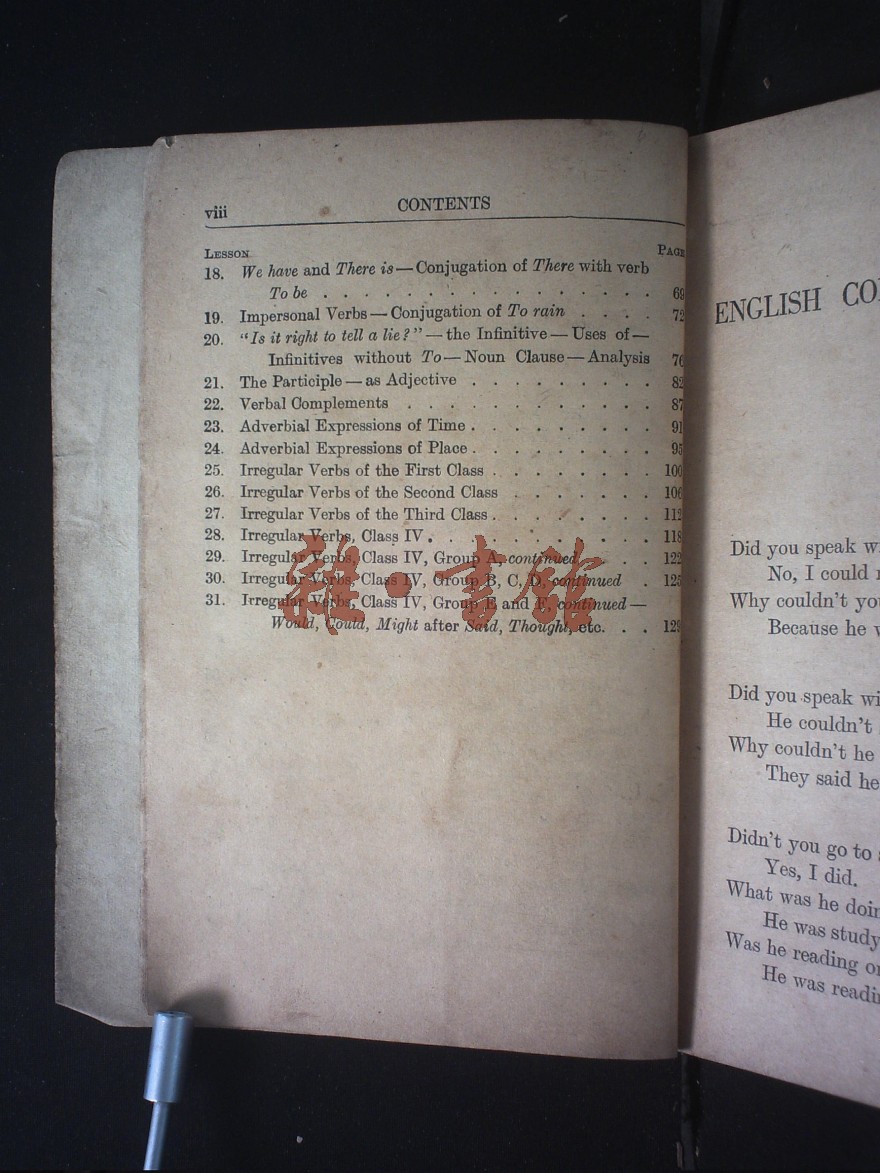 viii CONTENTS
LESSON PAGE
18. We have and There is — Conjugation of There with verb
To be . . . . . . . . . . . . . . . . 69
19. Impersonal Verbs — Conjugation of To rain . . . . 72
20. “Is it right to tell a lie?” — the Infinitive — Uses of —
Infinitives without To — Noun Clause — Analysis 76
21. The Participle — as Adjective . . . . . . . . . 82
22. Verbal Complements . . . . . . . . . . . . 87
23. Adverbial Expressions of Time . . . . . . . . . 91
24. Adverbial Expressions of Place . . . . . . . . . 95
25. Irregular Verbs of the First Class . . . . . . . . 100
26. Irregular Verbs of the Second Class . . . . . . . 106
27. Irregular Verbs of the Third Class . . . . . . . . 112
28. Irregular Verbs, Class IV . . . . . . . . . . . 118
29. Irregular Verbs, Class IV, Group A, continued . . . . 122
30. Irregular Verbs, Class IV, Group B, C, D, continued . 125
31. Irregular Verbs, Class IV, Group E and F, continued —
Would, Could, Might after Said, Thought, etc. . . 129
雜·書館
ENGLISH
Did you speak
No, I could
Why couldn’t
Because he
Did you speak
He couldn’t
Why couldn’t he
They said he
Didn’t you go to
Yes, I did.
What was he
He was
Was he reading
He was